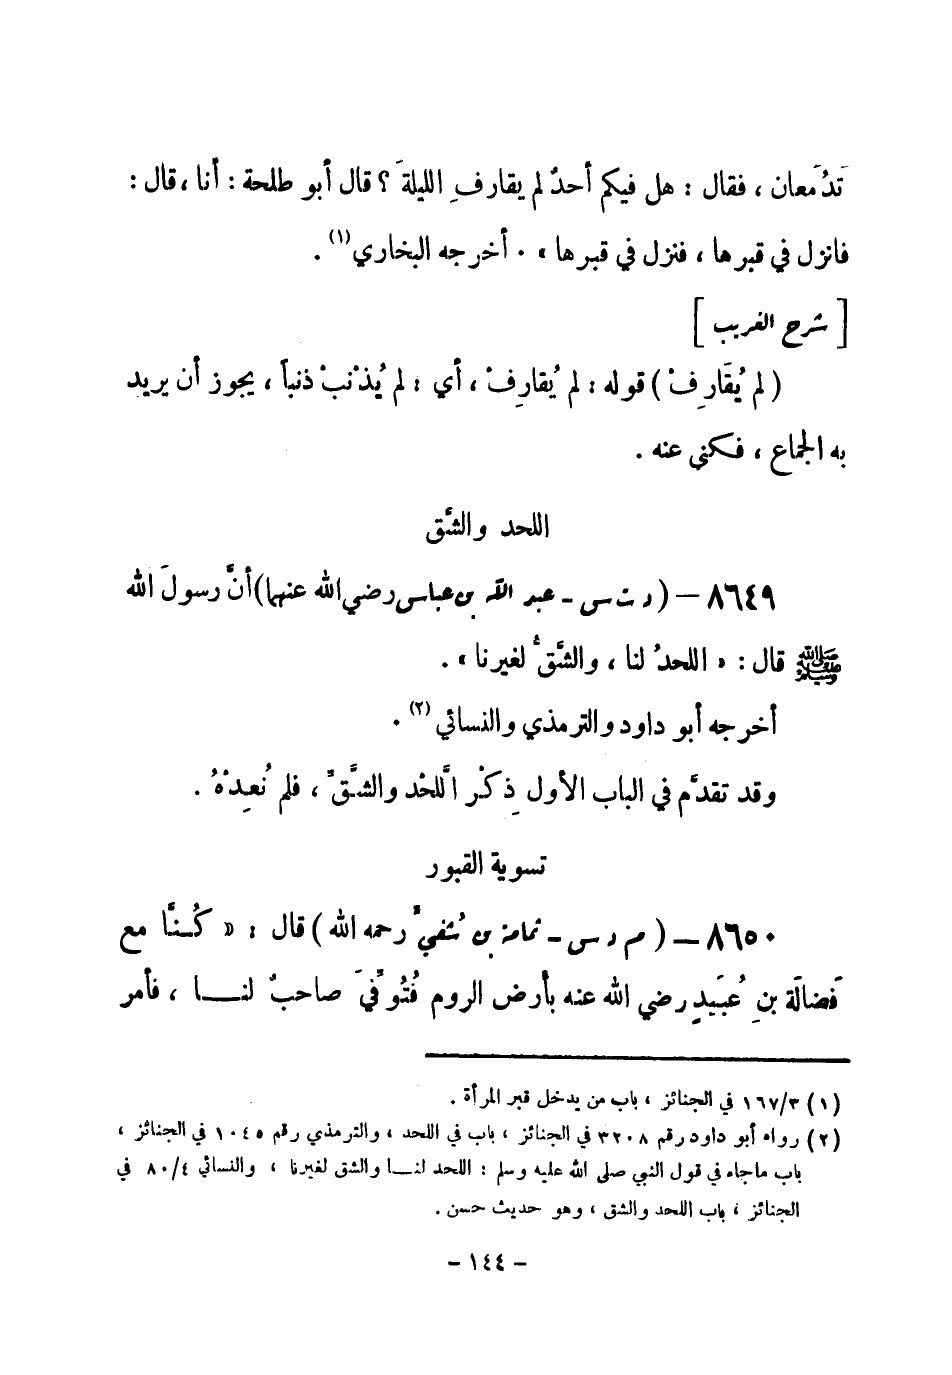 تَدْمَعان ، فقال : هل فيكم أحدٌ لم يقارفِ الليلةَ ؟ قال أبو طلحة : أنا ، قال :
فانزل في قبرها ، فنزل في قبرها » . أخرجه البخاري (١) .
[ شرح الغريب ]
( لم يُقَارِفْ ) قوله : لم يُقارِفْ ، أي : لم يُذْنبْ ذنباً ، يجوز أن يريد
به الجماع ، فكنى عنه .
اللحد والشق
٨٦٤٩ – ( د ت س - عبد الله بن عباس رضي الله عنهما ) أنَّ رسولَ الله
ﷺ قال : « اللحدُ لنا ، والشَّقُّ لغيرنا » .
أخرجه أبو داود والترمذي والنسائي (٢) .
وقد تقدَّم في الباب الأول ذِكْر اللَّحْد والشَّقِّ ، فلم نُعِدْهُ .
تسوية القبور
٨٦٥٠ – ( م د س - ثمامة بن شُفيٍّ رحمه الله ) قال : « كُنَّا مع
فَضالَة بنِ عُبَيدٍ رضي الله عنه بأرض الروم فتُوُفِّيَ صاحبٌ لنا ، فأمر
(١) ١٦٧/٣ في الجنائز ، باب من يدخل قبر المرأة .
(٢) رواه أبو داود رقم ٣٢٠٨ في الجنائز ، باب في اللحد ، والترمذي رقم ١٠٤٥ في الجنائز ،
باب ماجاء في قول النبي صلى الله عليه وسلم : اللحد لنا والشق لغيرنا ، والنسائي ٨٠/٤ في
الجنائز ، باب اللحد والشق ، وهو حديث حسن .
- ١٤٤ -